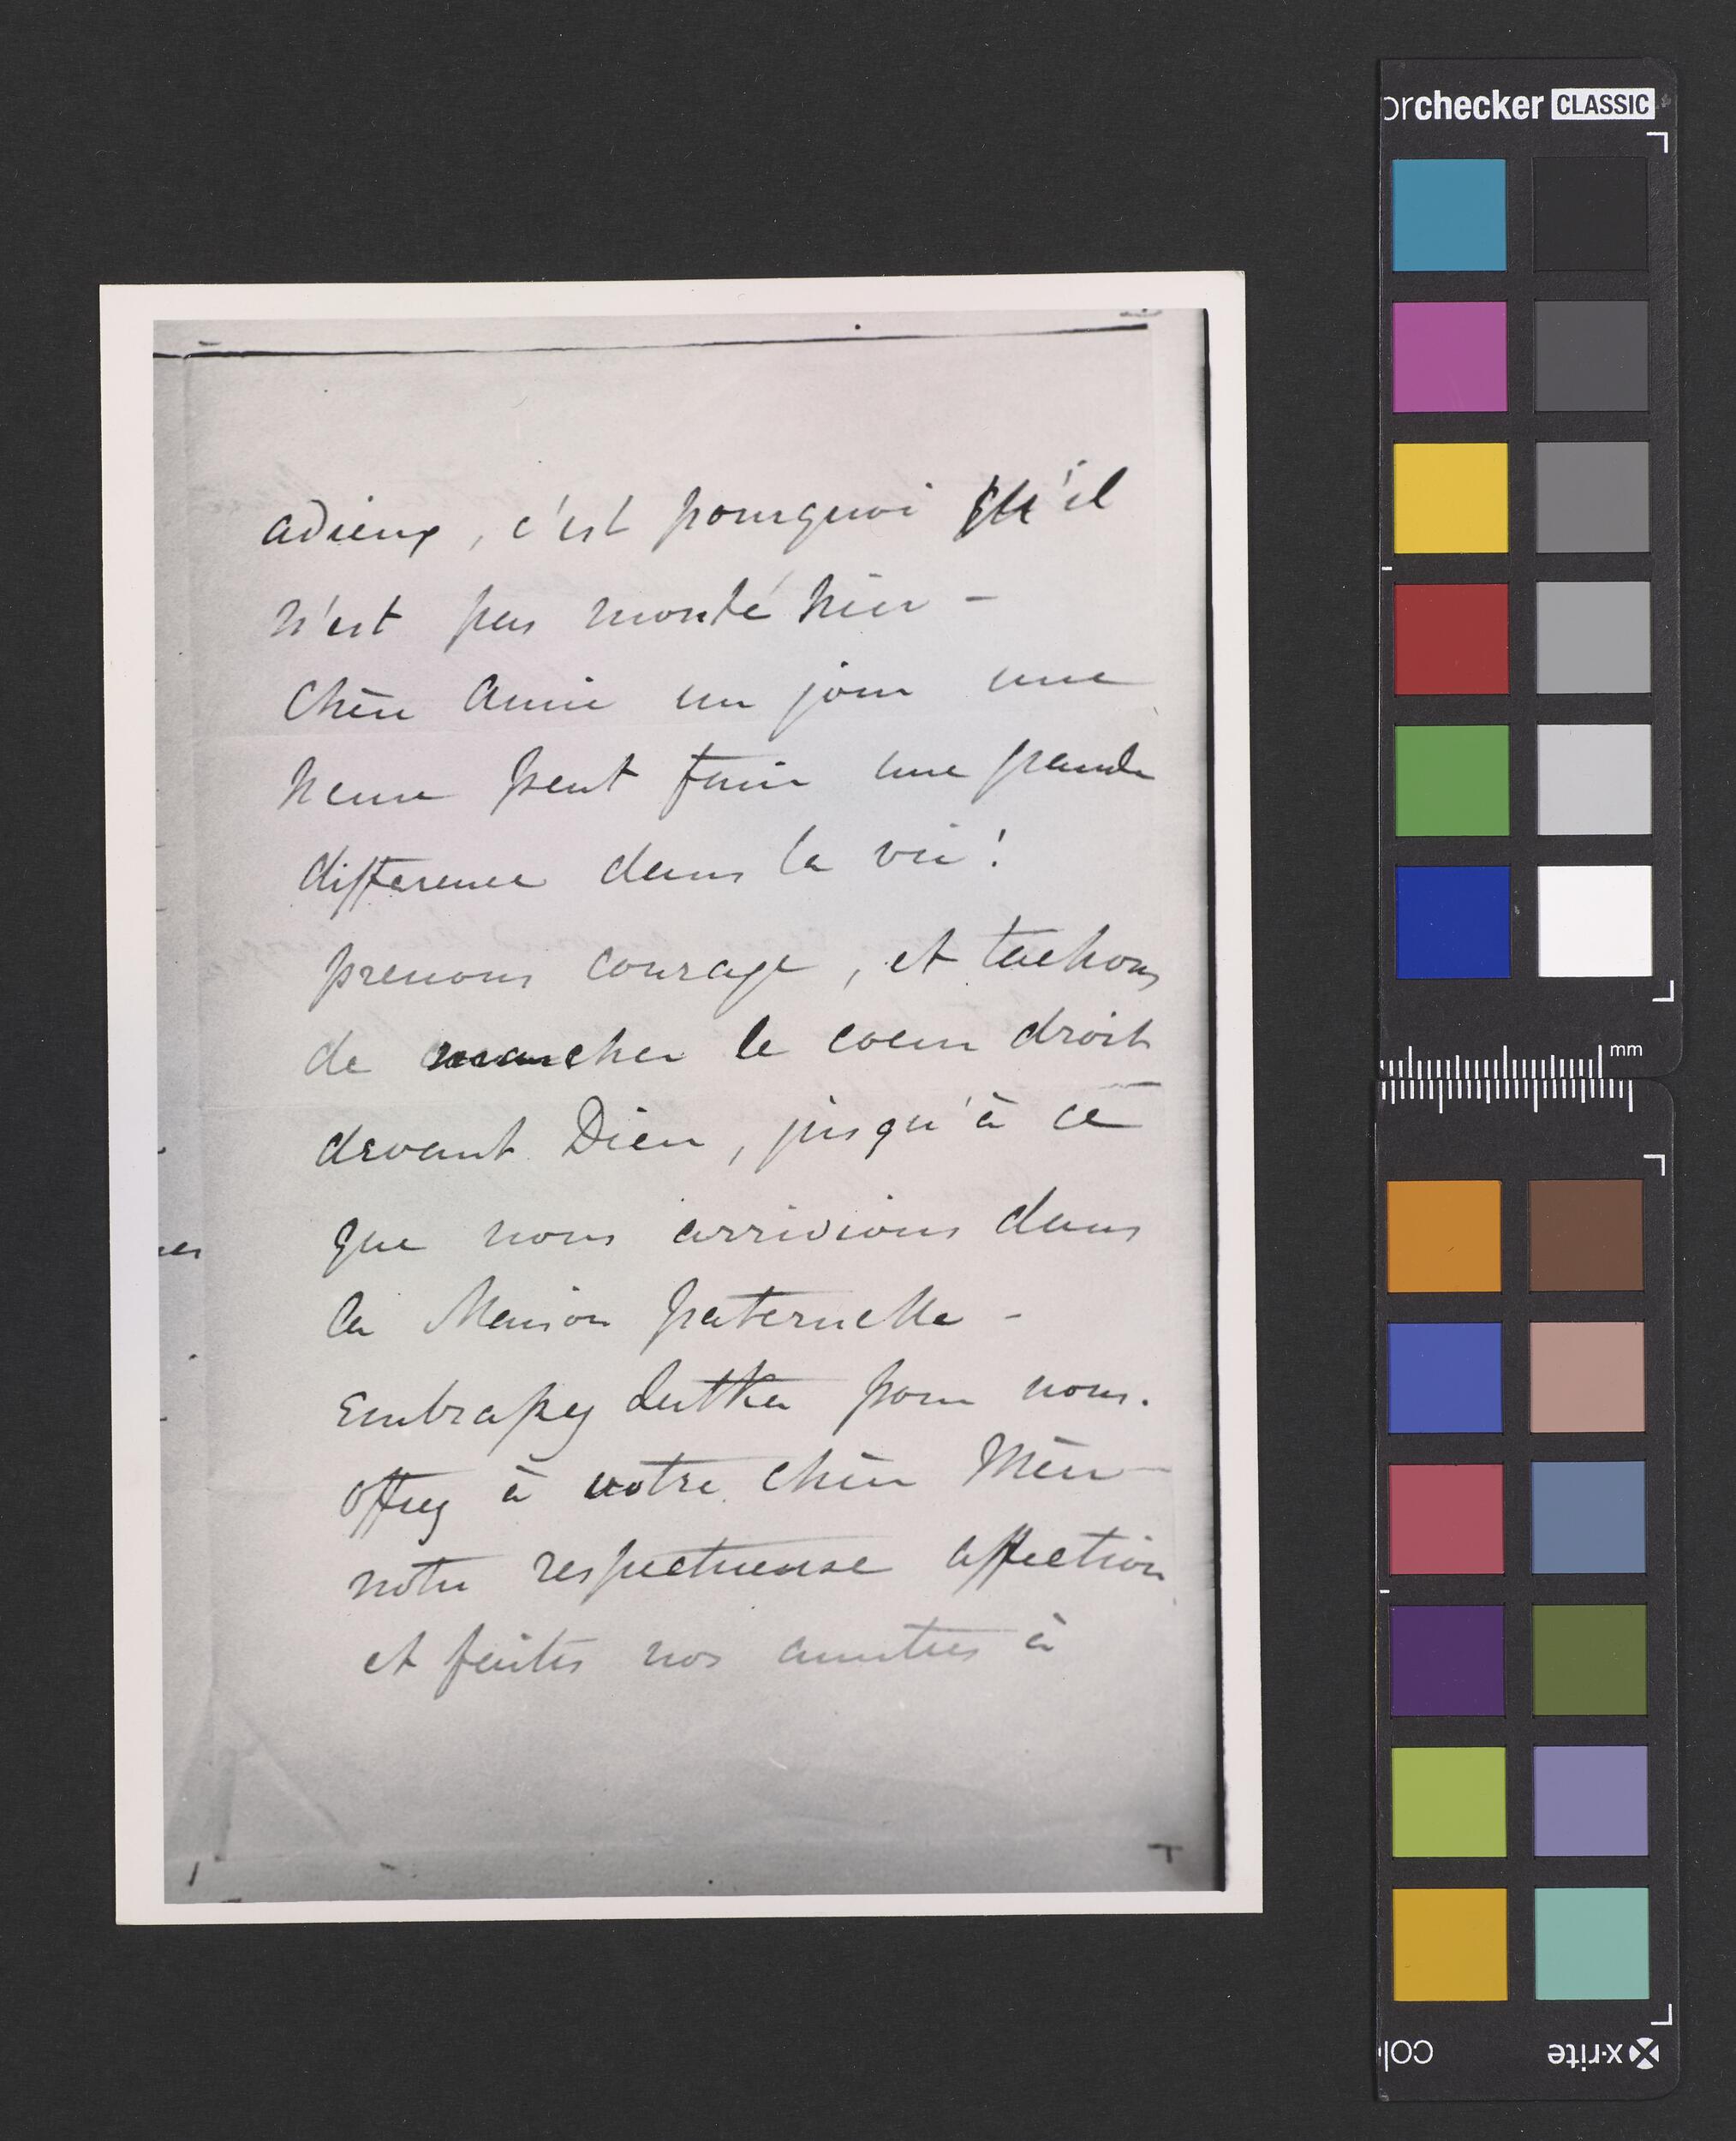 adieux, c'est pourquoi qu'il
n'est pas monté hier -
Chère Amie un jour une
heure peut faire une grande
difference dans la vie!
prenons courage, et tachons
de marcher le coeur droit
devant Dieu, jusqu'à ce
que nous arrivions dans
la Maison paternelle -
Embrassez pour nous.
offrez à votre chère Mère
notre respectueuse affection
et faites nos amities à
es
orchecker CLASSIC
mm
x-rite
col